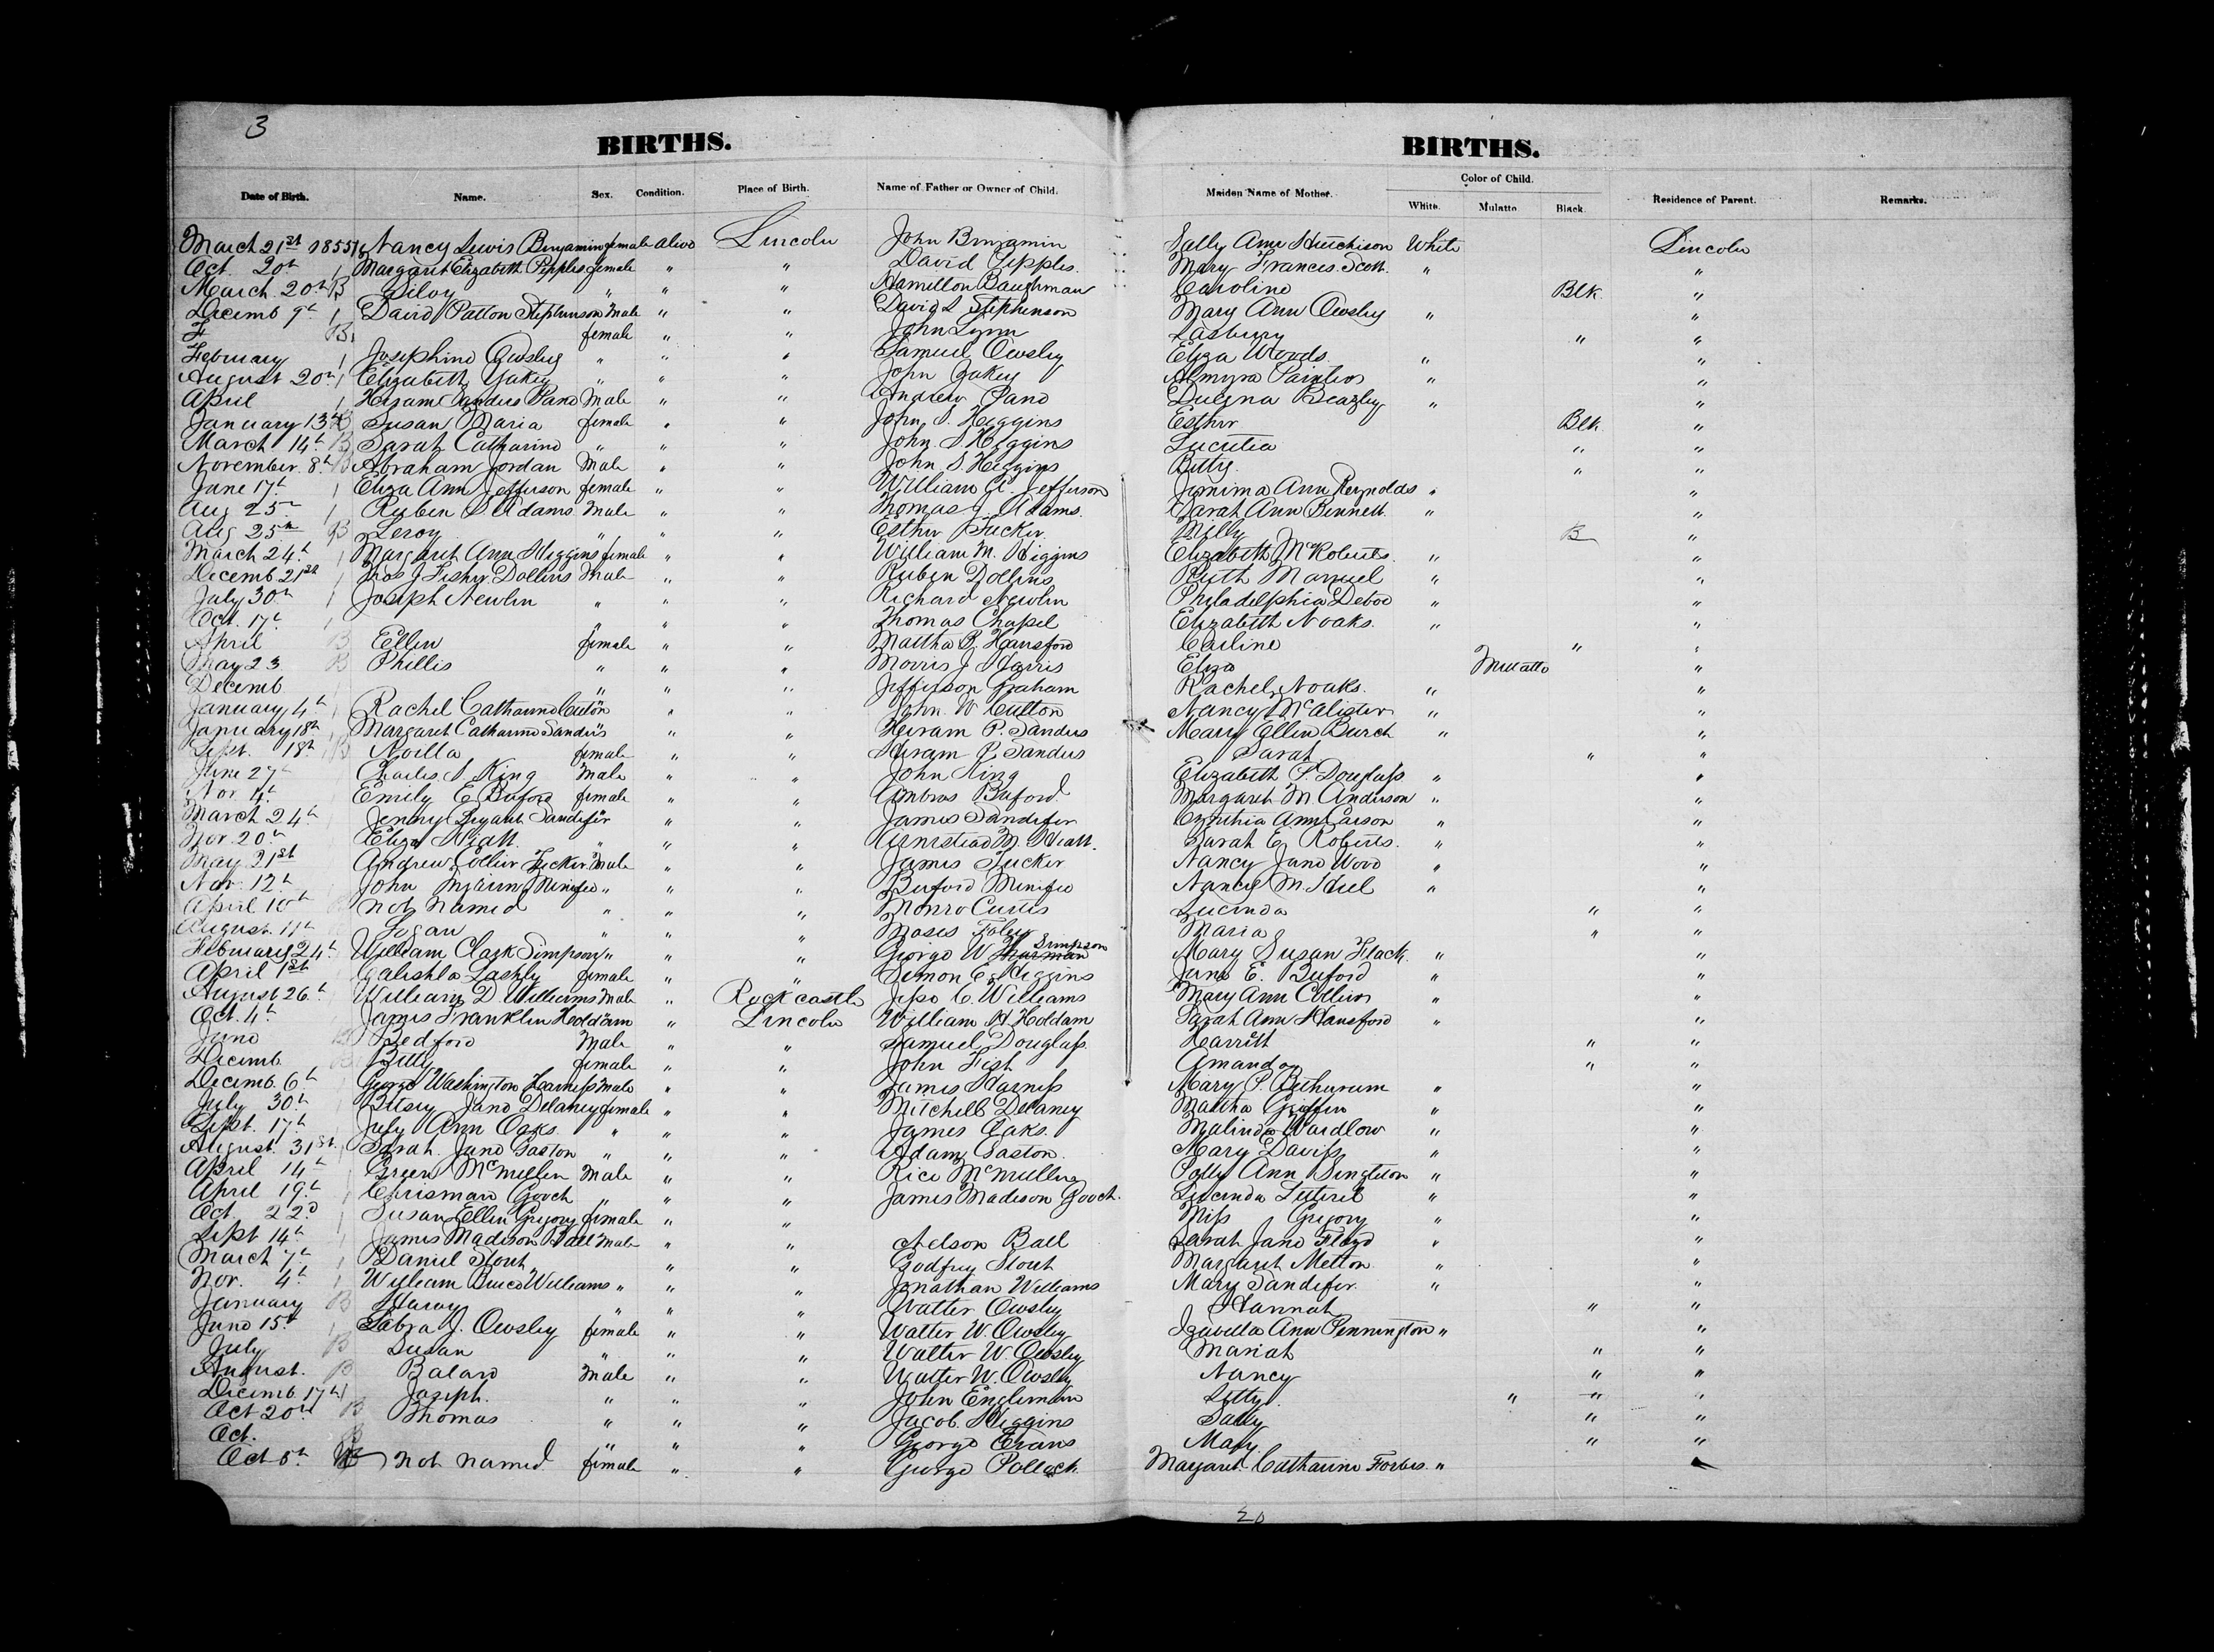 3
BIRTHS. BIRTHS.
Date of Birth. Name. Sex. Condition. Place of Birth. Name of Father or Owner of Child. Maiden Name of Mother. Color of Child. White. Mulatto Black. Residence of Parent. Remarks.
March 21st 1855 Nancy Lewis Benjamin female alive Lincoln John Benjamin Sally Ann Hutchison White Lincoln
Oct. 20th 1 Margaret Elizabeth Pepples female " " David Pepples. Mary Frances Scott. " "
March 20th B " " " Hamilton Baughman Caroline Blk "
Decemb 9th 1 David Patton Stephenson Male " " David S Stephenson Mary Ann Owsley " "
F B female " " John Lynn " "
February 1 Josephine Owsley " " " Samuel Owsley Eliza Woods " "
August 20th 1 Elizabeth Yakey " " " John Yakey Almyra Painter " "
April 1 Hiram Sanders Pand Male " " Andrew Pand Beazley " "
January 13th B Susan Maria female " " John S. Higgins Esther Blk "
March 14th B Sarah Catharine " " " John S. Higgins Lucretia " "
November 8th B Abraham Jordan Male " " John S Higgins Betty " "
June 17th 1 Eliza Ann Jefferson female " " William A. Jefferson Jemima Ann Reynolds " "
Aug 25 1 Ruben S Adams Male " " Thomas J. Adams. Sarah Ann Bennett " "
Aug 25th B Leroy " " " Esther Tucker Milly B "
March 24th 1 Margaret Ann Higgins female " " William M. Higgins Elizabeth McRoberts " "
Decemb 21st 1 Thos J Fishr Dollins Male " " Ruben Dollins Ruth Manuel " "
July 30th 1 Joseph Newlin " " " Richard Newlin Philadelphia Deboe " "
Oct. 17th 1 " " Thomas Chapel Elizabeth Noaks. " "
April B Ellen female " " Martha B. Hansford Carline " "
May 23 B Phillis " " " Morris J Harris Eliza Mulatto "
Decemb " " " Jefferson Graham Rachel Noaks. " "
January 4th Rachel Catharine Cutton " " " John W Cutton Nancy McAlister " "
January 18th Margaret Catharine Sanders " " " Hiram P. Sanders Mary Ellen Burch " "
Sept. 18th B Noilla female " " Hiram P. Sanders Sarah " "
June 27th Charles S. King Male " " John King Elizabeth P. Douglass " "
Nov 4th Emily E Buford female " " Ambros Buford Margaret M. Anderson " "
March 24th Jenny Bryant Sandifer " " " James Sandifer Cynthia Ann Carson " "
Nov 20th Eliza Hiatt " " " Armistead M. Hiatt. Sarah E. Roberts. " "
May 21st Andrew Collier Tucker Male " " James Tucker Nancy Jane Wood " "
Nov. 12th John Menifee " " " Buford Menifee Nancy M. " "
April 10th Not Named " " " Monro Curtis Lucinda " "
August 11th Logan " " " Moses Foley Maria " "
February 24th William Clark Simpson " " " George W Simpson Mary Susan Flack. " "
April 1st Calishla Lashly female " " Simon E. Higgins Jane E. Buford " "
August 26th William D Williams Male " Rockcastle Jesse C. Williams Mary Ann Collier " "
Oct. 4th James Franklin Holdam " " Lincoln William H Holdam Sarah Ann Hansford " "
June B Bedford Male " " Samuel Douglass. Harriet " "
Decemb B Betty female " " John Fish Amanda " "
Decemb 6th George Washington Harness Male " " James Harness Mary P. Bethurum " "
July 30th Betsey Jane Delaney female " " Mitchell Delaney Martha Griffin " "
Sept. 17th July Ann Oaks. " " " James Oaks. Malinda Wardlow " "
August. 31st Sarah Jane Gaston " " " Adam Gaston. Mary Daviss " "
April 14th Green McMullen Male " " Rice McMullen Polly Ann Singleton " "
April 19th 1 Chrisman Gooch " " " James Madison Gooch. Lucinda " "
Oct. 22d 1 Susan Ellen Gregory female " " Miss Gregory " "
Sept 14th James Madison Ball Male " " Nelson Ball Sarah Jane Floyd " "
March 7th 1 Daniel Stout " " " Godfrey Stout Margaret Melton " "
Nov. 4th 1 William Bruce Williams " " " Jonathan Williams Mary Sandifer. " "
January B Harvy " " " Walter Owsley Hannah " "
June 15th 1 Sabra J. Owsley female " " Walter W. Owsley Izabella Ann Pennington " "
July B Susan " " " Walter W. Owsley Mariah " "
August. B Balard Male " " Walter W. Owsley Nancy " "
Decemb 17th Joseph. " " " John Engleman Letty. " " "
Oct 20th B Thomas " " " Jacob. Higgins Sally " "
Oct. B " " " George Evans Mary " "
Oct 5th W Not Named female " " George Pollock Margaret Catharine Forbes. "